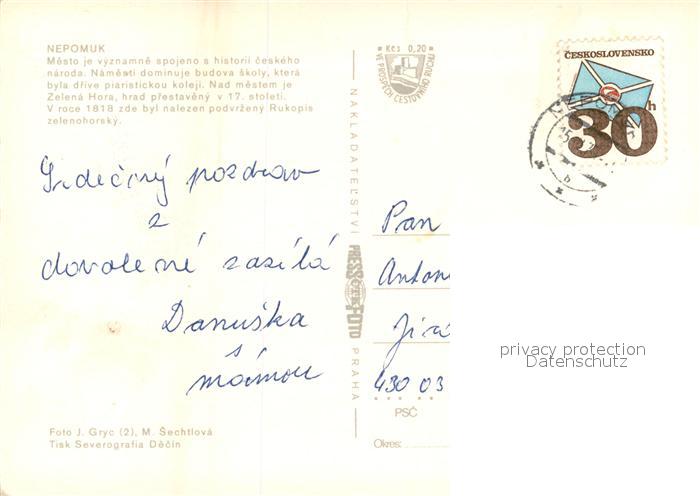 NEPOMUK
Město je významně spojeno s historií českého
národa. Náměstí dominuje budova školy, která
byla dříve piaristickou kolejí. Nad městem je
Zelená Hora, hrad přestavěný v 17. století.
V roce 1818 zde byl nalezen podvržený Rukopis
zelenohorský.
Srdečný pozdrav
z
dovolené zasílá
Danuška
s
mámou
Foto J. Gryc (2), M. Šechtlová
Tisk Severografia Děčín
NAKLADATELSTVÍ
PRESSFOTO
PRAHA
Kčs 0,20
VE PROSPĚCH CESTOVNÍHO RUCHU
ČESKOSLOVENSKO
30h
NEPOMUK
b
Pan
Anton
Jir
430 03
PSČ
Okres:
privacy protection
Datenschutz